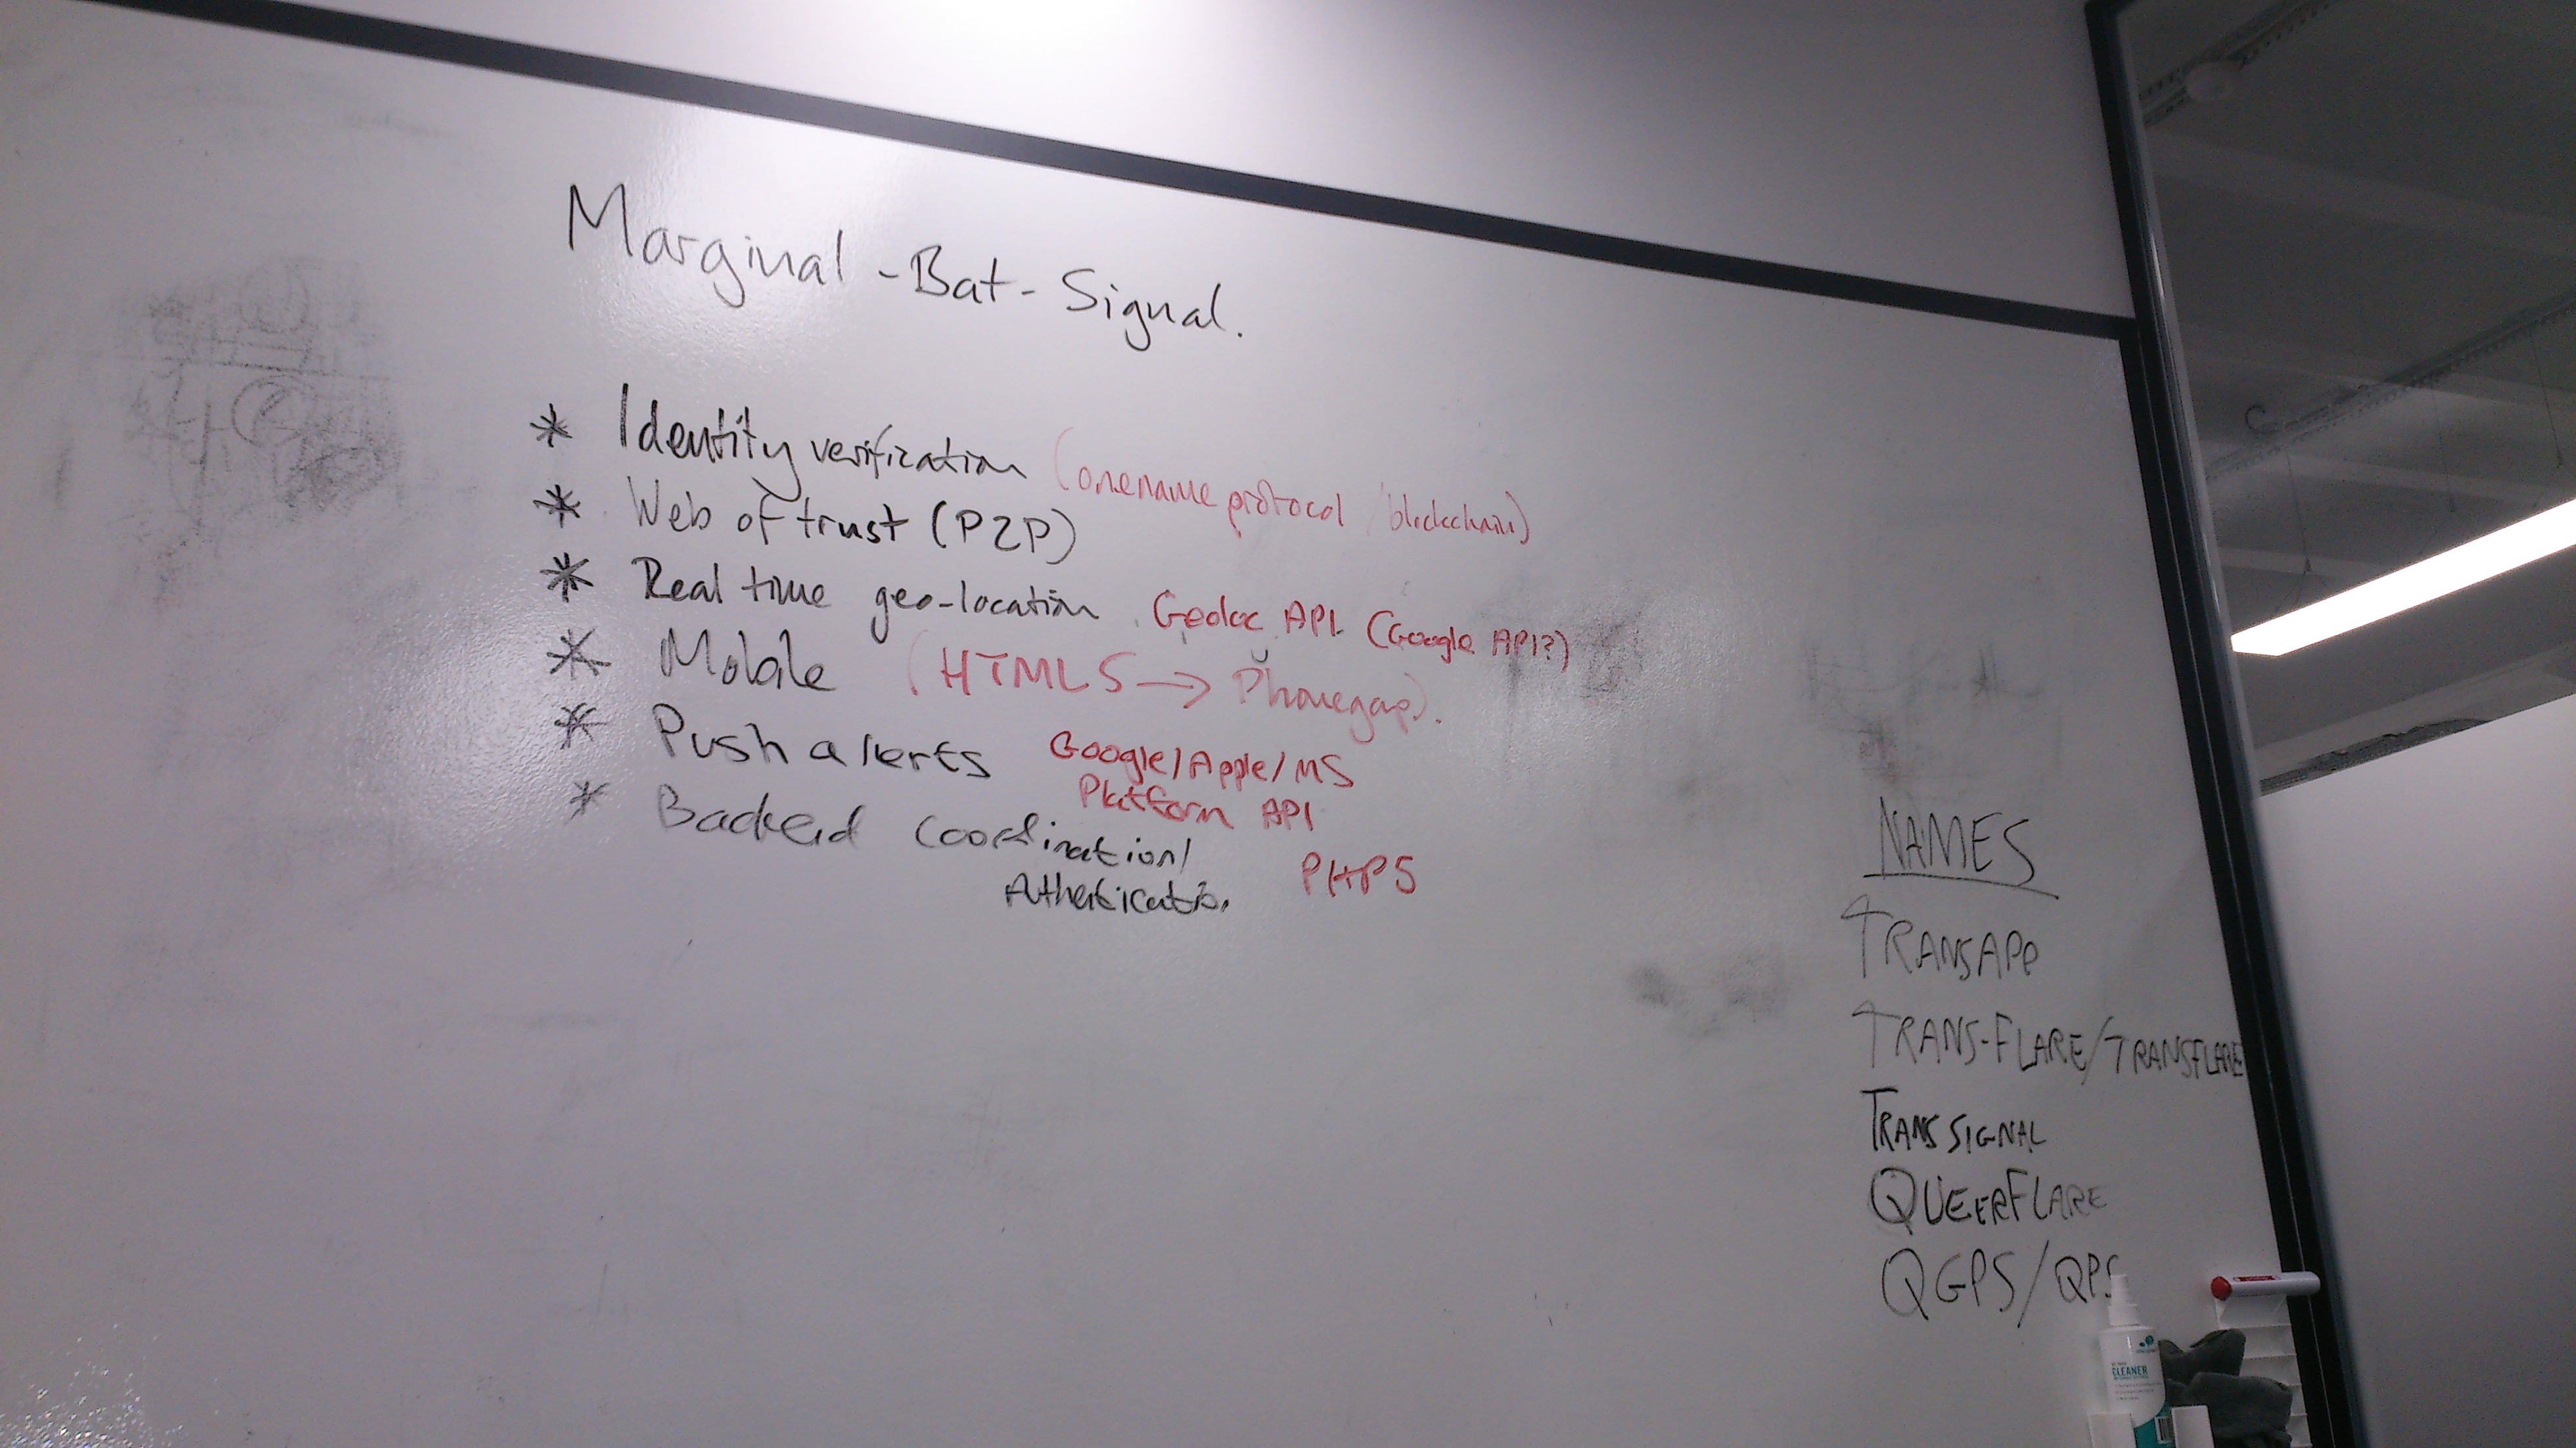 Marginal-Bat-Signal.
* Identity verification (onename protocol /blockchain)
* Web of trust (P2P)
* Real time geo-location Geoloc API (Google API?)
* Mobile (HTML5 → Phonegap).
* Push alerts Google/Apple/MS
Platform API
* Backend Coordination/
Authentication PHP5
NAMES
TRANSAPP
TRANS-FLARE/TRANSFLARE
TRANS SIGNAL
QUEERFLARE
QGPS/QPS
CLEANER